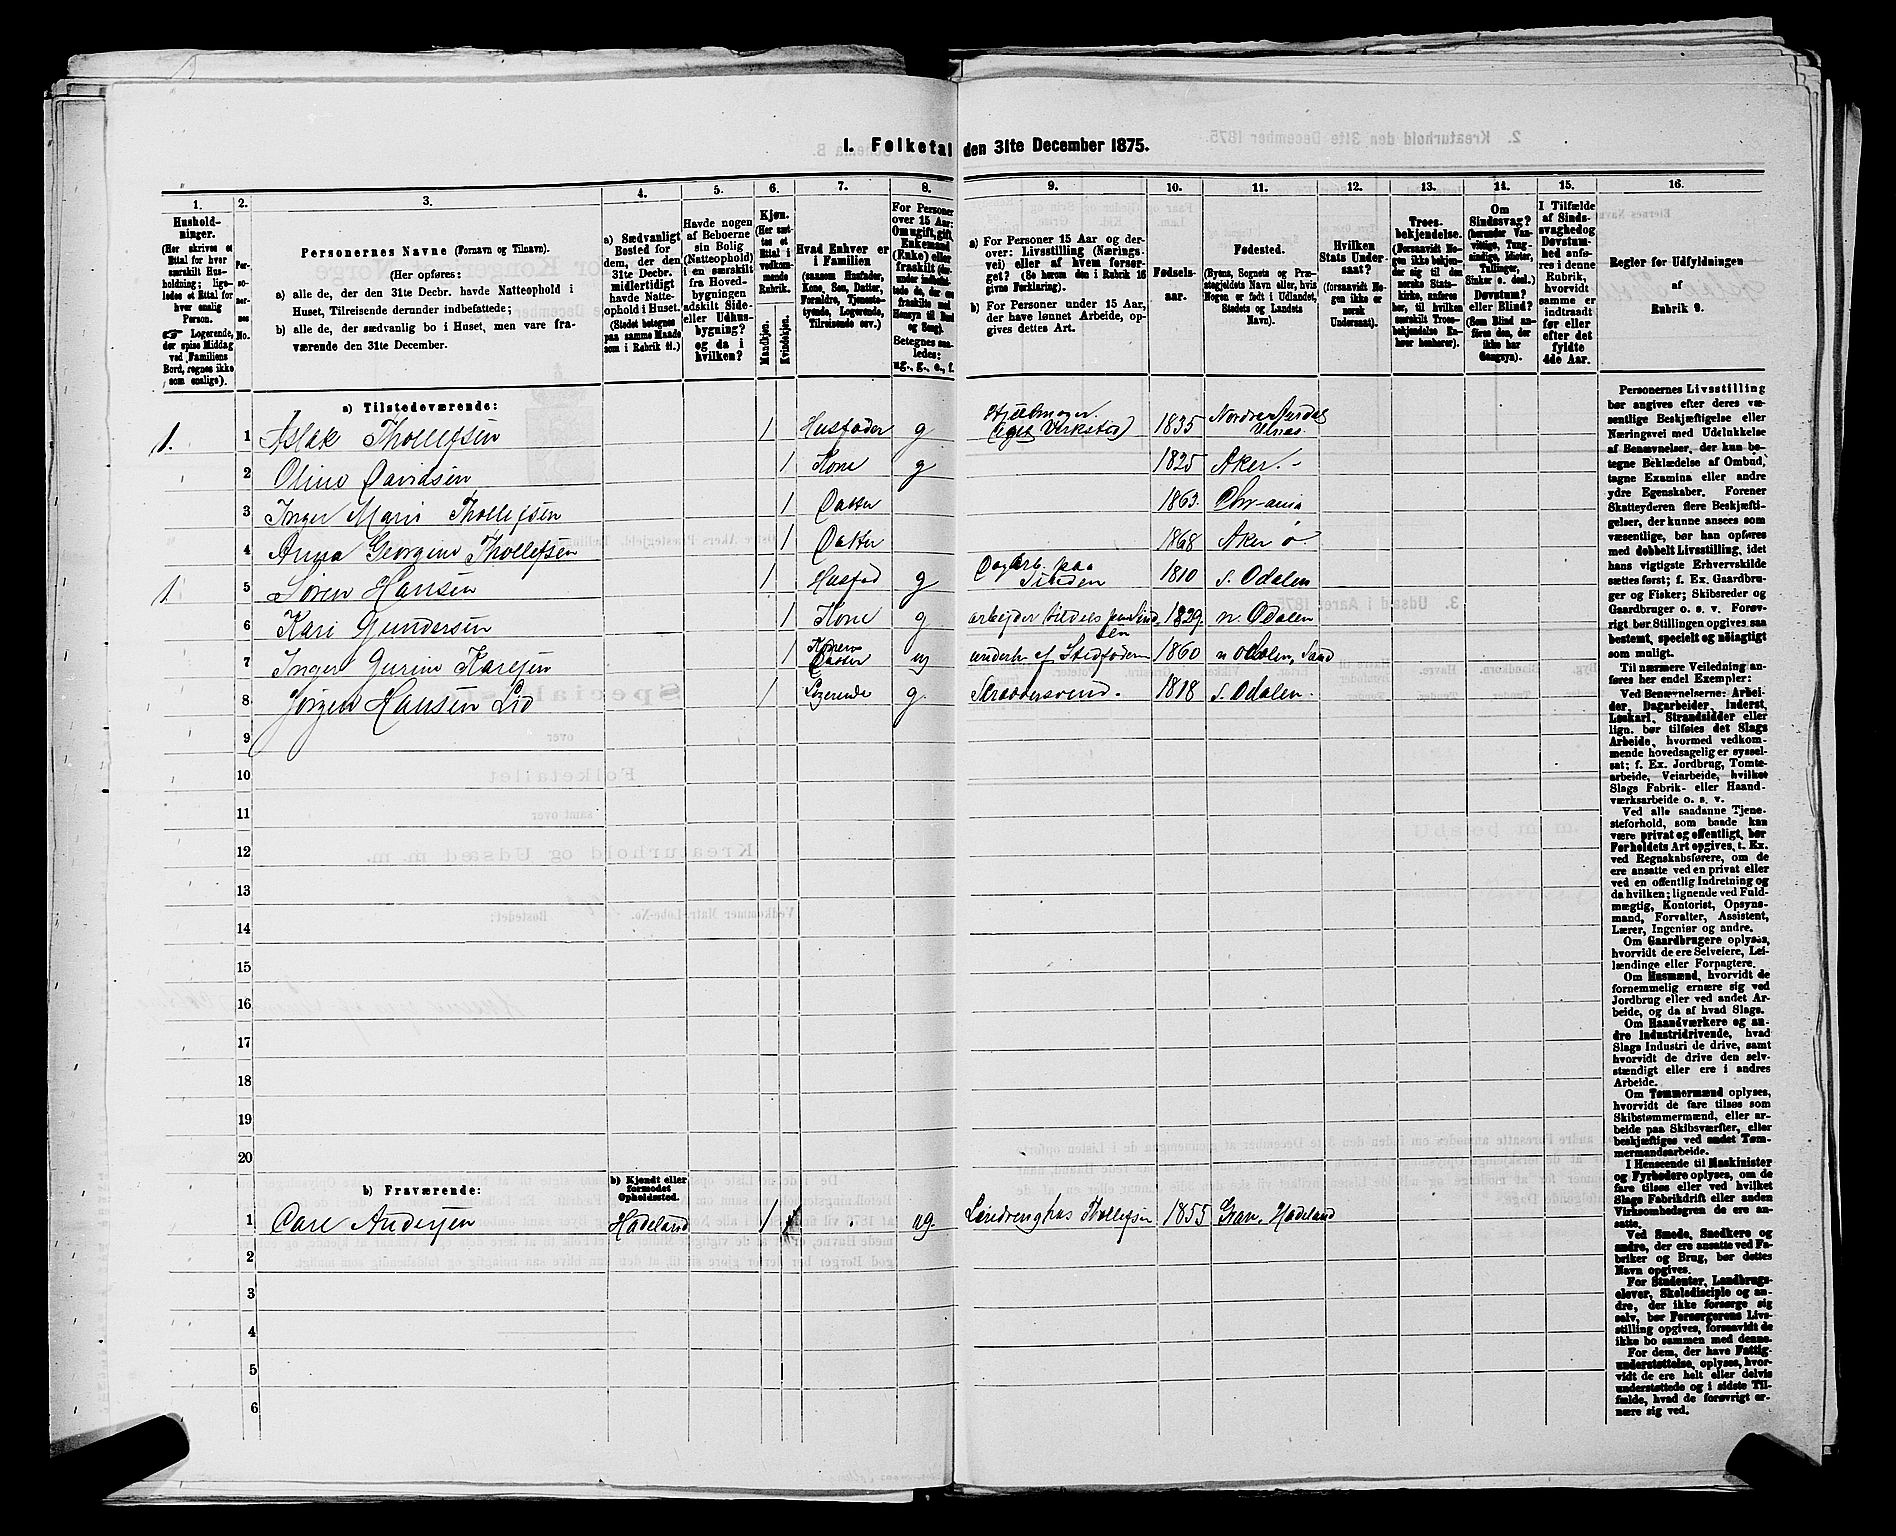 1. Folketal den 31te December 1875.
1. 2. 3. 4. 5. 6. 7. 8. 9. 10. 11. 12. 13. 14. 15. 16.
Hushold-
ninger.
(Her skrives et
Ettal for hver
særskilt Hus-
holdning; lige-
ledes et Ettal for
hver enslig
Person.
Logerende,
der spise Middag
ved Familiens
Bord, regnes ikke
som enslige).
Per-
so-
ner-
nes
No.
Personernes Navne (Fornavn og Tilnavn).
(Her opføres:
a) alle de, der den 31te Decbr. havde Natteophold i
Huset, Tilreisende derunder indbefattede;
b) alle de, der sædvanlig bo i Huset, men vare fra-
værende den 31te December.
a) Sædvanligt
Bosted for
dem, der den
31te Decbr.
midlertidigt
havde Natte-
ophold i Huset.
(Stedet betegnes
paa samme Maade
som i Rubrik 11.)
Havde nogen
af Beboerne
sin Bolig
(Natteophold)
i en særskilt
fra Hoved-
bygningen
adskilt Side-
eller Udhus-
bygning?
og da i
hvilken?
Kjøn.
(Her sæt-
tes et
Ettal i
vedkom-
mende
Rubrik.
Mandkjøn.
Kvindekjøn.
Hvad Enhver er
i Familien
(saasom Husfader,
Kone, Søn, Datter,
Forældre, Tjeneste-
tyende, Logerende,
Tilreisende osv.)
For Personer
over 15 Aar:
Om ugift, gift,
Enkemand
(Enke) eller
fraskilt (der-
under indbefat-
tede de, der ere
fraskilte med
Hensyn til Bord
og Seng).
Betegnes saa-
ledes:
ug., g., e., f.
a) For Personer 15 Aar og der-
over: Livsstilling (Nærings-
vei) eller af hvem forsør-
get? (Se herom den i Rubrik 16
givne Forklaring).
b) For Personer under 15 Aar,
der have lønnet Arbeide, op-
gives dettes Art.
Fødsels-
aar.
Fødested.
(Byens, Sognets og Præ-
stegjeldets Navn eller, hvis
Nogen er født i Udlandet,
Stedets og Landets
Navn).
Hvilken
Stats Under-
saat?
(forsaavidt No-
gen ikke er
norsk
Undersaat).
Troes-
bekjendelse.
(Forsaavidt No-
gen ikke bekjen-
der sig til den
norske Stats-
kirke, anføres
her, til hvilken
særskilt Troes-
bekjendelse En-
hver henhører).
Om
Sindssvag?
(herunder Van-
vittige, Tung-
sindige, Idioter,
Tullinger,
Sinker o. desl.)
Døvstum?
eller Blind?
(Som Blind an-
føres den, der
ikke har
Gangsyn).
I Tilfælde
af Sinds-
svaghed og
Døvstum-
hed anfø-
res i denne
Rubrik,
hvorvidt
samme er
indtraadt
før eller
efter det
fyldte
4de Aar.
Regler for Udfyldningen
af
Rubrik 9.
a) Tilstedeværende:
1. 1 Aslak Thollefsen 1 Husfader g Hjulmager. (eget Verksted) 1835 Nordre Aurdal Ulnæs.
2 Oline Davidsen 1 Kone g 1825 Aker.
3 Inger Marie Thollefsen 1 Datter 1863. Chr-ania
4 Anna Georgine Thollefsen 1 Datter 1868 Aker ø.
1 5 Søren Hansen 1 Husfad g Dagarb. paa Tunden 1810 s. Odalen
6 Kari Gundersen 1 Kone g arbeider tildels 1829. n. Odalen
7 Inger Gurine Karlsen 1 Konens Datter ug underh. af Stedfaderen 1860 n Odalen, Sand
8 Jørgen Hansen Lid 1 Logerende g. Skræddersvend. 1818 s. Odalen.
9
10
11
12
13
14
15
16
17
18
19
20
b) Fraværende:
b) Kjendt eller
formodet
Opholdssted.
1 Carl Andersen Hadeland 1 ug. Læredreng hos Thollefsen 1855 Gran, Hadeland
2
3
4
5
6
Personernes Livsstilling
bør angives efter deres væ-
sentlige Beskjæftigelse eller
Næringsvei med Udelukkelse
af Benævnelser, der kun be-
tegne Beklædelse af Ombud,
tagne Examina eller andre
ydre Egenskaber. Forener
Skatteyderen flere Beskjæfti-
gelser, der kunne ansees som
væsentlige, bør han opføres
med dobbelt Livsstilling, idet
hans vigtigste Erhvervskilde
sættes først; f. Ex. Gaardbru-
ger og Fisker; Skibsreder og
Gaardbruger o. s. v. Forøv-
rigt bør Stillingen opgives saa
bestemt, specielt og nøiagtigt
som muligt.
Til nærmere Veiledning an-
føres her endel Exempler:
Ved Benævnelserne: Arbei-
der, Dagarbeider, Inderst,
Løskarl, Strandsidder eller
lign. bør tilføies det Slags
Arbeide, hvormed vedkom-
mende hovedsagelig er syssel-
sat; f. Ex. Jordbrug, Tomte-
arbeide, Veiarbeide, hvilket
Slags Fabrik- eller Haand-
værksarbeide o. s. v.
Ved alle saadanne Tjene-
steforhold, som baade kan
være privat og offentligt, bør
Forholdets Art opgives, t. Ex.
ved Regnskabsførere, om de
ere ansatte ved en privat eller
ved en offentlig Indretning og
da hvilken; lignende ved Fuld-
mægtig, Kontorist, Opsyns-
mand, Forvalter, Assistent,
Lærer, Ingeniør og andre.
Om Gaardbrugere oplyses,
hvorvidt de ere Selveiere, Lei-
lændinge eller Forpagtere.
Om Husmænd, hvorvidt de
fornemmelig ernære sig ved
Jordbrug eller ved andet Ar-
beide, og da af hvad Slags.
Om Haandværkere og an-
dre Industridrivende, hvad
Slags Industri de drive, samt
hvorvidt de drive den selv-
stændigt eller ere i andres
Arbeide.
Om Tømmermænd oplyses,
hvorvidt de fare tilsøs som
Skibstømmermænd, eller ar-
beide paa Skibsværfter, eller
beskjæftiges ved andet Tøm-
mermandsarbeide.
I Henseende til Maskinister
og Fyrbødere oplyses, om de
fare tilsøs eller ved hvilket
Slags Fabrikdrift eller anden
Virksomhedsgren de ere an-
satte.
Ved Smede, Snedkere og
andre, der ere ansatte ved Fa-
briker og Brug, bør dettes
Navn opgives.
For Studenter, Landbrugs-
elever, Skoledisciple og an-
dre, der ikke forsørge sig
selv, bør Forsørgerens Livs-
stilling opgives, forsaavidt de
ikke bo sammen med denne.
For dem, der have Fattig-
understøttelse, oplyses, hvor-
vidt de ere helt eller delvis
understøttede og i sidste Til-
fælde, hvad de forøvrigt er-
nære sig ved.